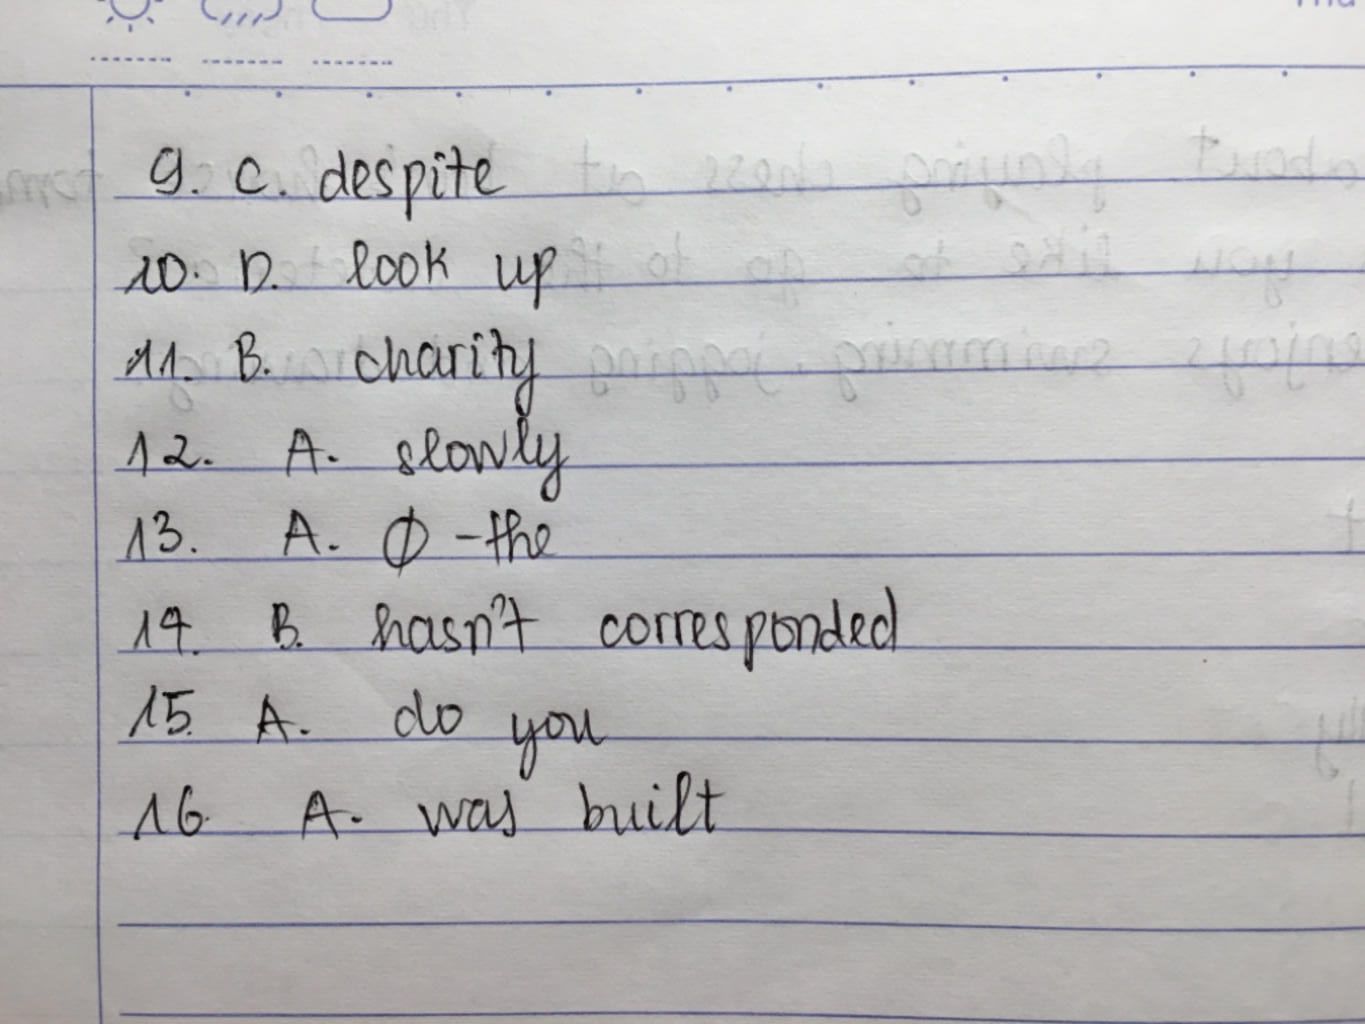 9. C. despite
10. D. look up
11. B. charity
12. A. slowly
13. A. Ø - the
14. B. hasn't corresponded
15. A. do you
16. A. was built